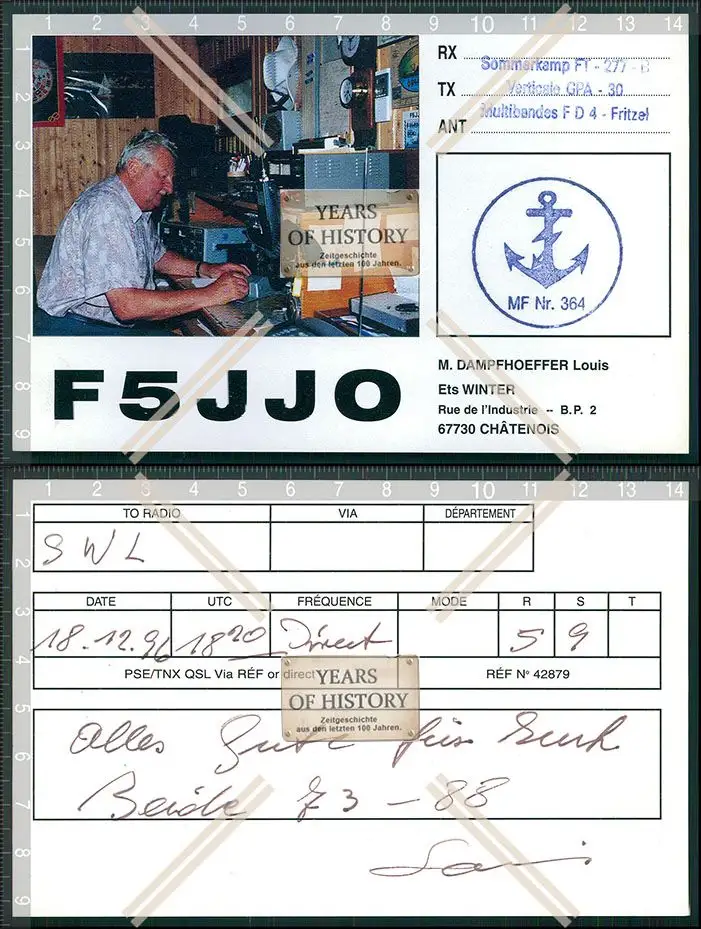 1 2 3 4 5 6 7 8 9 10 11 12 13 14
1
2
3
4
5
6
7
8
9
RX Sommerkamp FT - 277 - B
TX Verticale GPA - 30
ANT Multibandes F D 4 - Fritzel
YEARS
OF HISTORY
Zeitgeschichte
aus den letzten 100 Jahren.
MF Nr. 364
F5JJO
M. DAMPFHOEFFER Louis
Ets WINTER
Rue de l'Industrie -- B.P. 2
67730 CHÂTENOIS
1 2 3 4 5 6 7 8 9 10 11 12 13 14
1
2
3
4
5
6
7
8
9
TO RADIO VIA DÉPARTEMENT
SWL
DATE UTC FRÉQUENCE MODE R S T
18.12.96 1820 Direct 5 9
PSE/TNX QSL Via RÉF or direct RÉF N° 42879
YEARS
OF HISTORY
Zeitgeschichte
aus den letzten 100 Jahren.
Alles Gute für Euch
Beide 73 - 88